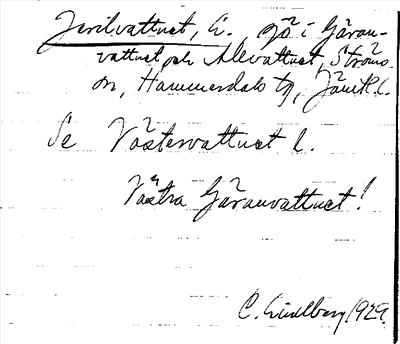 Jerilvattnet, L., sjö i Gåxan-
vattnet och Alevattnet, Ströms
sn, Hammerdals tg, Jämtl. l.
Se Västervattnet l.
Västra Gåxanvattnet!
C. Lindberg 1929.